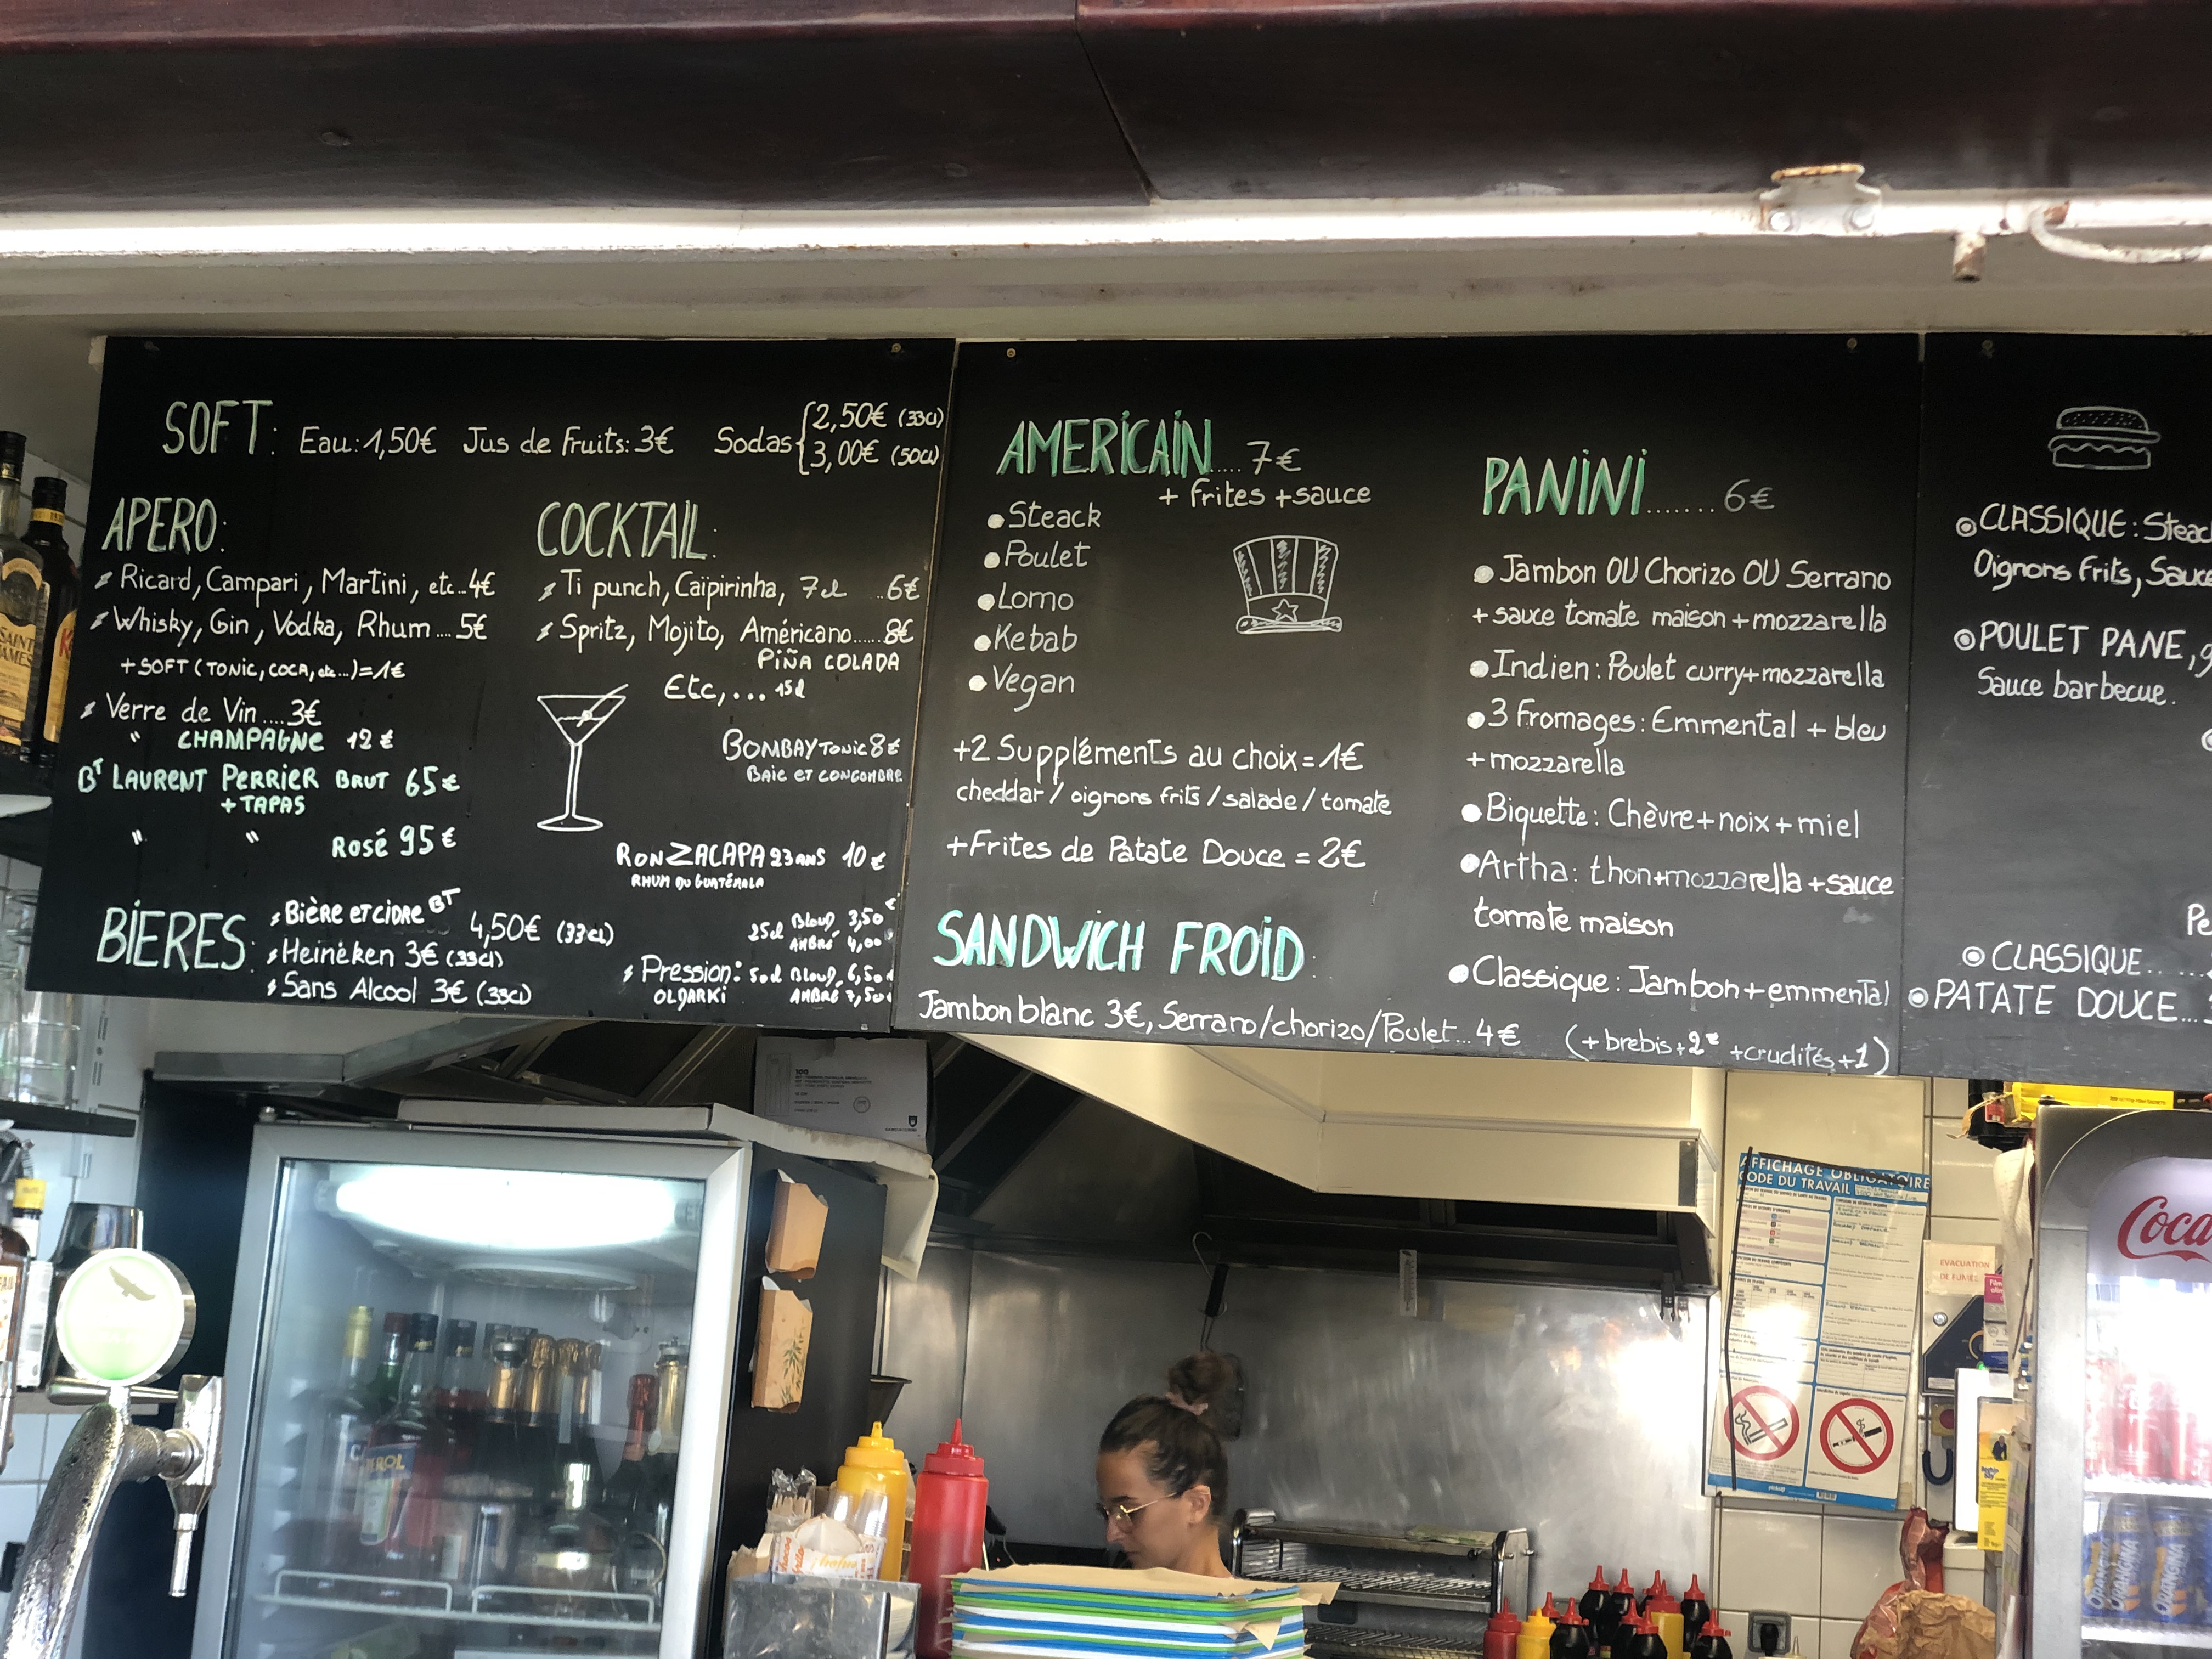 SOFT: Eau: 1,50€ Jus de fruits: 3€ Sodas { 2,50€ (33cl)
3,00€ (50cl)
APERO:
Ricard, Campari, Martini, etc...4€
Whisky, Gin, Vodka, Rhum....5€
+ SOFT (TONIC, COCA, etc...) = 1€
Verre de Vin....3€
" CHAMPAGNE 12€
BT LAURENT PERRIER BRUT 65€
+ TAPAS
" " ROSÉ 95€
COCKTAIL:
Ti punch, Caïpirinha, 7cl ..6€
Spritz, Mojito, Américano......8€
PIÑA COLADA
Etc,... 15cl
BOMBAY TONIC 8€
BAIE ET CONCOMBRE
RON ZACAPA 23 ANS 10€
RHUM DU GUATÉMALA
BIERES:
Bière ET CIDRE BT 4,50€ (33cl)
Heinèken 3€ (33cl)
Sans Alcool 3€ (33cl)
25cl Blond. 3,50€
AMBRÉ 4,00
Pression: 50cl Blond. 6,50
OLDARKI AMBRÉ 7,50
AMERICAIN..... 7€
+ frites + sauce
Steack
Poulet
Lomo
Kebab
Vegan
+2 Suppléments au choix = 1€
cheddar / oignons frits / salade / tomate
+Frites de Patate Douce = 2€
SANDWICH FROID:
Jambon blanc 3€, Serrano/chorizo/Poulet...4€
(+ brebis + 2€ + crudités + 1)
PANINI.......6€
Jambon OU Chorizo OU Serrano
+ sauce tomate maison + mozzarella
Indien: Poulet curry + mozzarella
3 Fromages: Emmental + bleu
+ mozzarella
Biquette: Chèvre + noix + miel
Artha: thon + mozzarella + sauce
tomate maison
Classique: Jambon + emmental
CLASSIQUE: Steac
Oignons frits, Sauce
POULET PANE,
Sauce barbecue.
Pe
CLASSIQUE.....
PATATE DOUCE...
AFFICHAGE OBLIGATOIRE
CODE DU TRAVAIL
EVACUATION
DE FUMÉE
Coca
ORANGINA